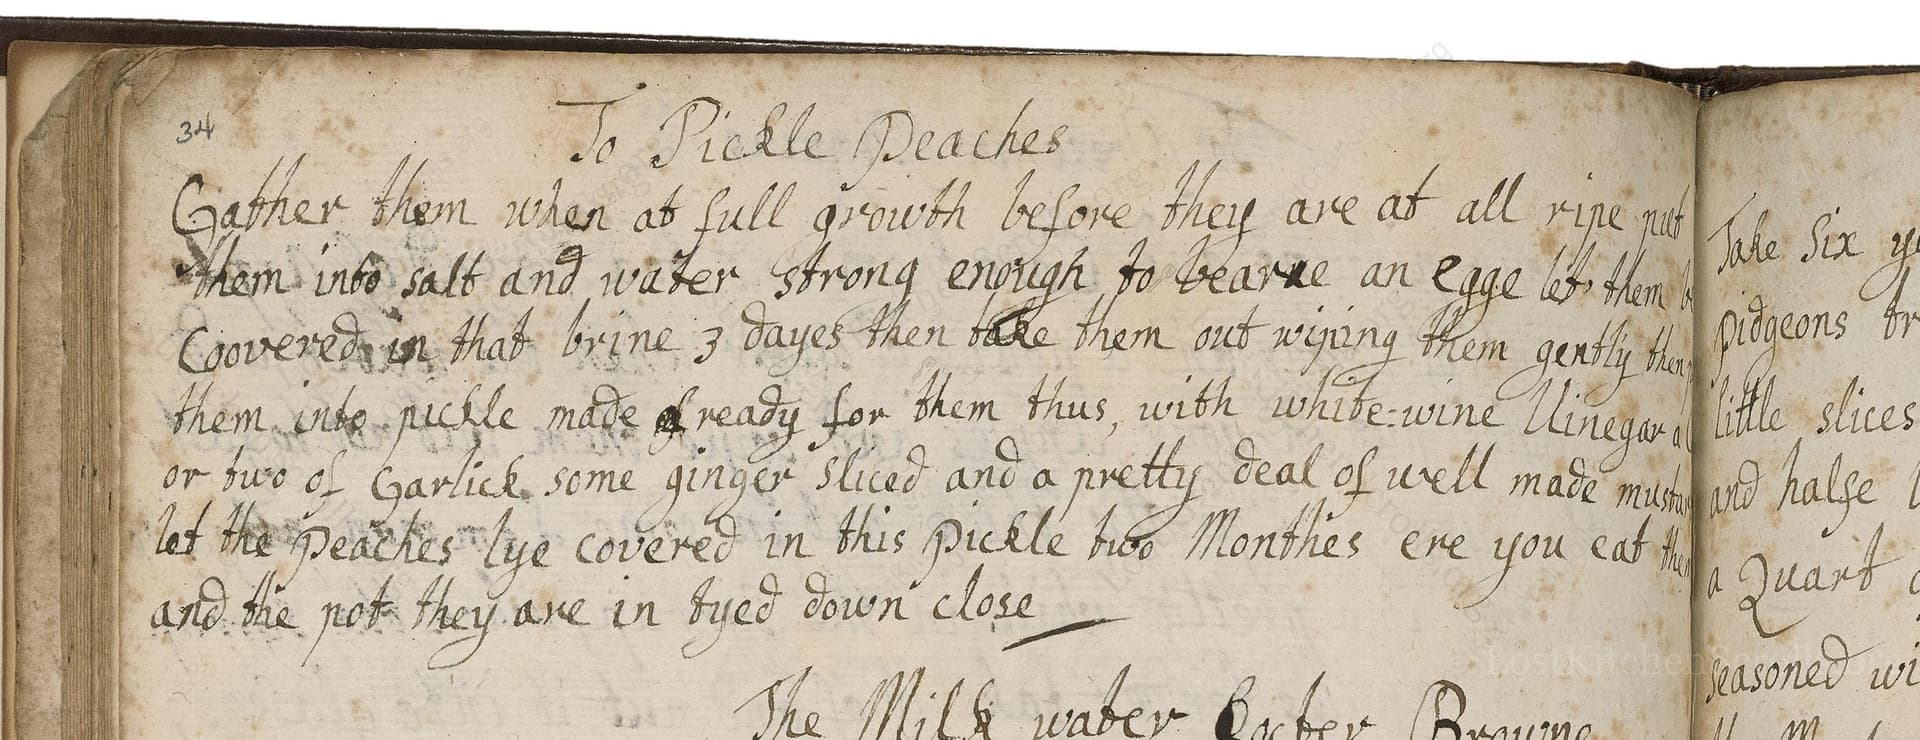 34
To Pickle Peaches
Gather them when at full growth before they are at all ripe put
them into salt and water strong enough to bearne an egge let them
Coovered in that brine 3 dayes then take them out wiping them gently then
them into pickle made ready for them thus, with white-wine Vinegar
or two of Garlick some ginger sliced and a pretty deal of well made
let the Peaches lye covered in this Pickle two Monthes ere you eat
and the pot they are in tyed down close
The Milk water Docter Browne
Take Six
pidgeons
little slices
and halfe
a Quart
seasoned